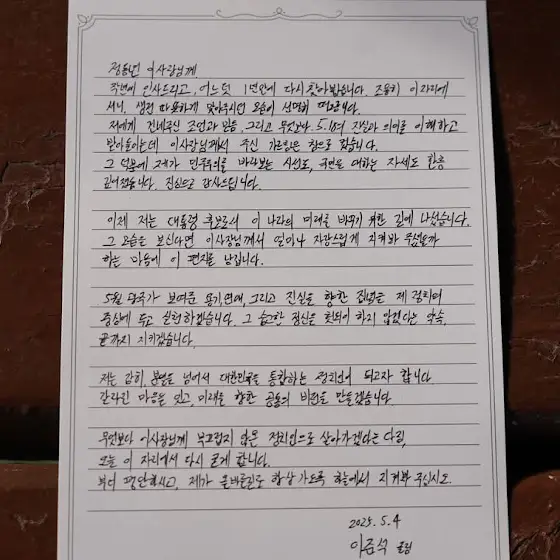 정동년 이사장님께
작년에 인사드리고, 어느덧 1년만에 다시 찾아뵙습니다. 조용히 이 자리에
서니, 생전 따뜻하게 맞아주시던 모습이 선명히 떠오릅니다.
저에게 건네주신 조언과 믿음, 그리고 무엇보다 5.18의 진실과 의미를 이해하고
받아들이는데 이사장님께서 주신 가르침은 참으로 컸습니다.
그 덕분에 제가 민주주의를 바라보는 시선도, 국민을 대하는 자세도 한층
깊어졌습니다. 진심으로 감사드립니다.
이제 저는 대통령 후보로서 이 나라의 미래를 바꾸기 위한 길에 나섰습니다.
그 모습을 보신다면 이사장님께서 얼마나 자랑스럽게 지켜봐 주셨을까
하는 마음에 이 편지를 남깁니다.
5월 광주가 보여준 용기, 연대, 그리고 진실을 향한 집념은 제 정치의
중심에 두고 실천하겠습니다. 그 숭고한 정신을 헛되이 하지 않겠다는 약속,
끝까지 지키겠습니다.
저는 감히, 분열을 넘어서 대한민국을 통합하는 정치인이 되고자 합니다.
갈라진 마음을 잇고, 미래를 향한 공동의 비전을 만들겠습니다.
무엇보다 이사장님께 부끄럽지 않은 정치인으로 살아가겠다는 다짐,
오늘 이 자리에서 다시 굳게 합니다.
부디 평안하시고, 제가 올바른길로 항상 가도록 하늘에서 지켜봐 주십시오.
2025. 5. 4
이준석 올림